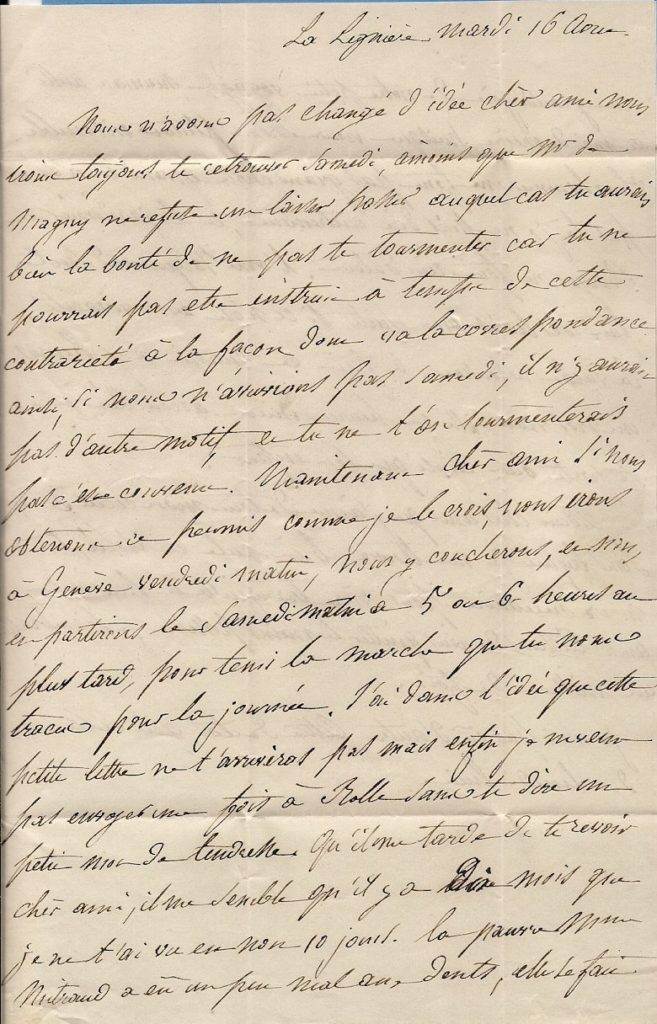 La Lignière mardi 16 Aout
Nous n'avons pas changé d'idée cher ami nous
irons toujours te retrouver Samedi, àmoins que Mr de
Magny ne refuse un laisser passer auquel cas tu aurais
bien la bonté de ne pas te tourmenter car tu ne
pourrais pas etre instruit à temps de cette
contrarieté à la façon dont va la correspondance
ainsi, si nous n'arrivions pas Samedi, il n'y aurait
pas d'autre motif, et tu ne t'en tourmenterais
pas c'est convenu. Maintenant cher ami Si nous
obtenons ce permis comme je le crois, nous irons
à Genève vendredi matin, nous y coucherons, et nous
en partirons le Samedi matin à 5 ou 6 heures au
plus tard, pour tenir la marche que tu nous
traces pour la journée. J'ai dans l'idée que cette
petite lettre ne t'arrivera pas mais enfin je ne veux
pas envoyer une fois à Rolle sans te dire un
petit mot de tendresse. Qu'il me tarde de te revoir
cher ami, il me semble qu'il y a dix mois que
je ne t'ai vu et non 10 jours. la pauvre Mme
a eû un peu mal aux dents, elle se fait